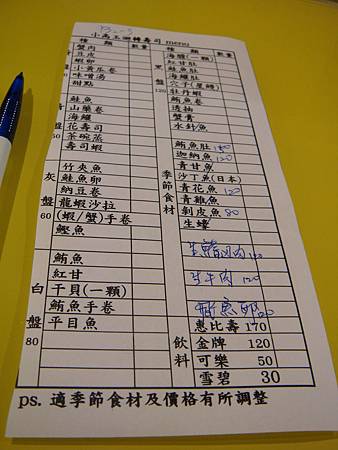 小高玉迴轉壽司 menu
種 類 數量
蟹肉
豆皮
蝦卵
小黃瓜卷
味噌湯
甜點
鮭魚
山藥卷
海鱺
花壽司
茶碗蒸
壽司蝦
50
竹夾魚
鮭魚卵
納豆卷
龍蝦沙拉
(蝦/蟹)手卷
鰹魚
灰盤 60
鮪魚
紅甘
干貝(一顆)
鮪魚手卷
平目魚
白盤 80
種 類 數量
海膽(一顆)
紅甘肚
鮭魚肚
海鱺肚
穴子(星鰻)
牡丹蝦
鮪魚卷
透抽
蟹膏
水針魚
黑盤
鮪魚肚
迦納魚 120
青甘魚
沙丁魚(日本)
青花魚 120
青雞魚
剝皮魚 80
生蠔
季節食材
生牛肉 120
飲料
惠比壽 170
金牌 120
可樂 50
雪碧 30
ps. 適季節食材及價格有所調整